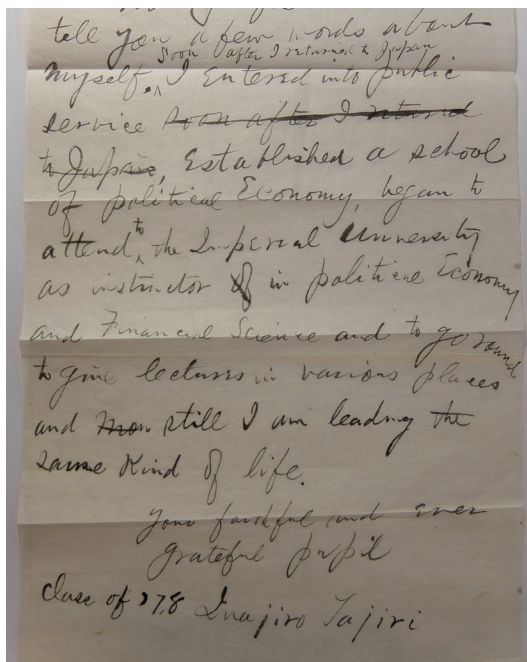 tell you a few words about
soon after I returned to Japan
myself. ^ I Entered into public
service soon after I returned
to Japan, Established a school
of political Economy, began to
to
attend ^ the Imperial University
as instructor of in political Economy
and Financial Science and to go round
to give lectures in various places
and still I am leading the
same Kind of life.
Your faithful and ever
grateful pupil
Class of 78 Inajiro Tajiri